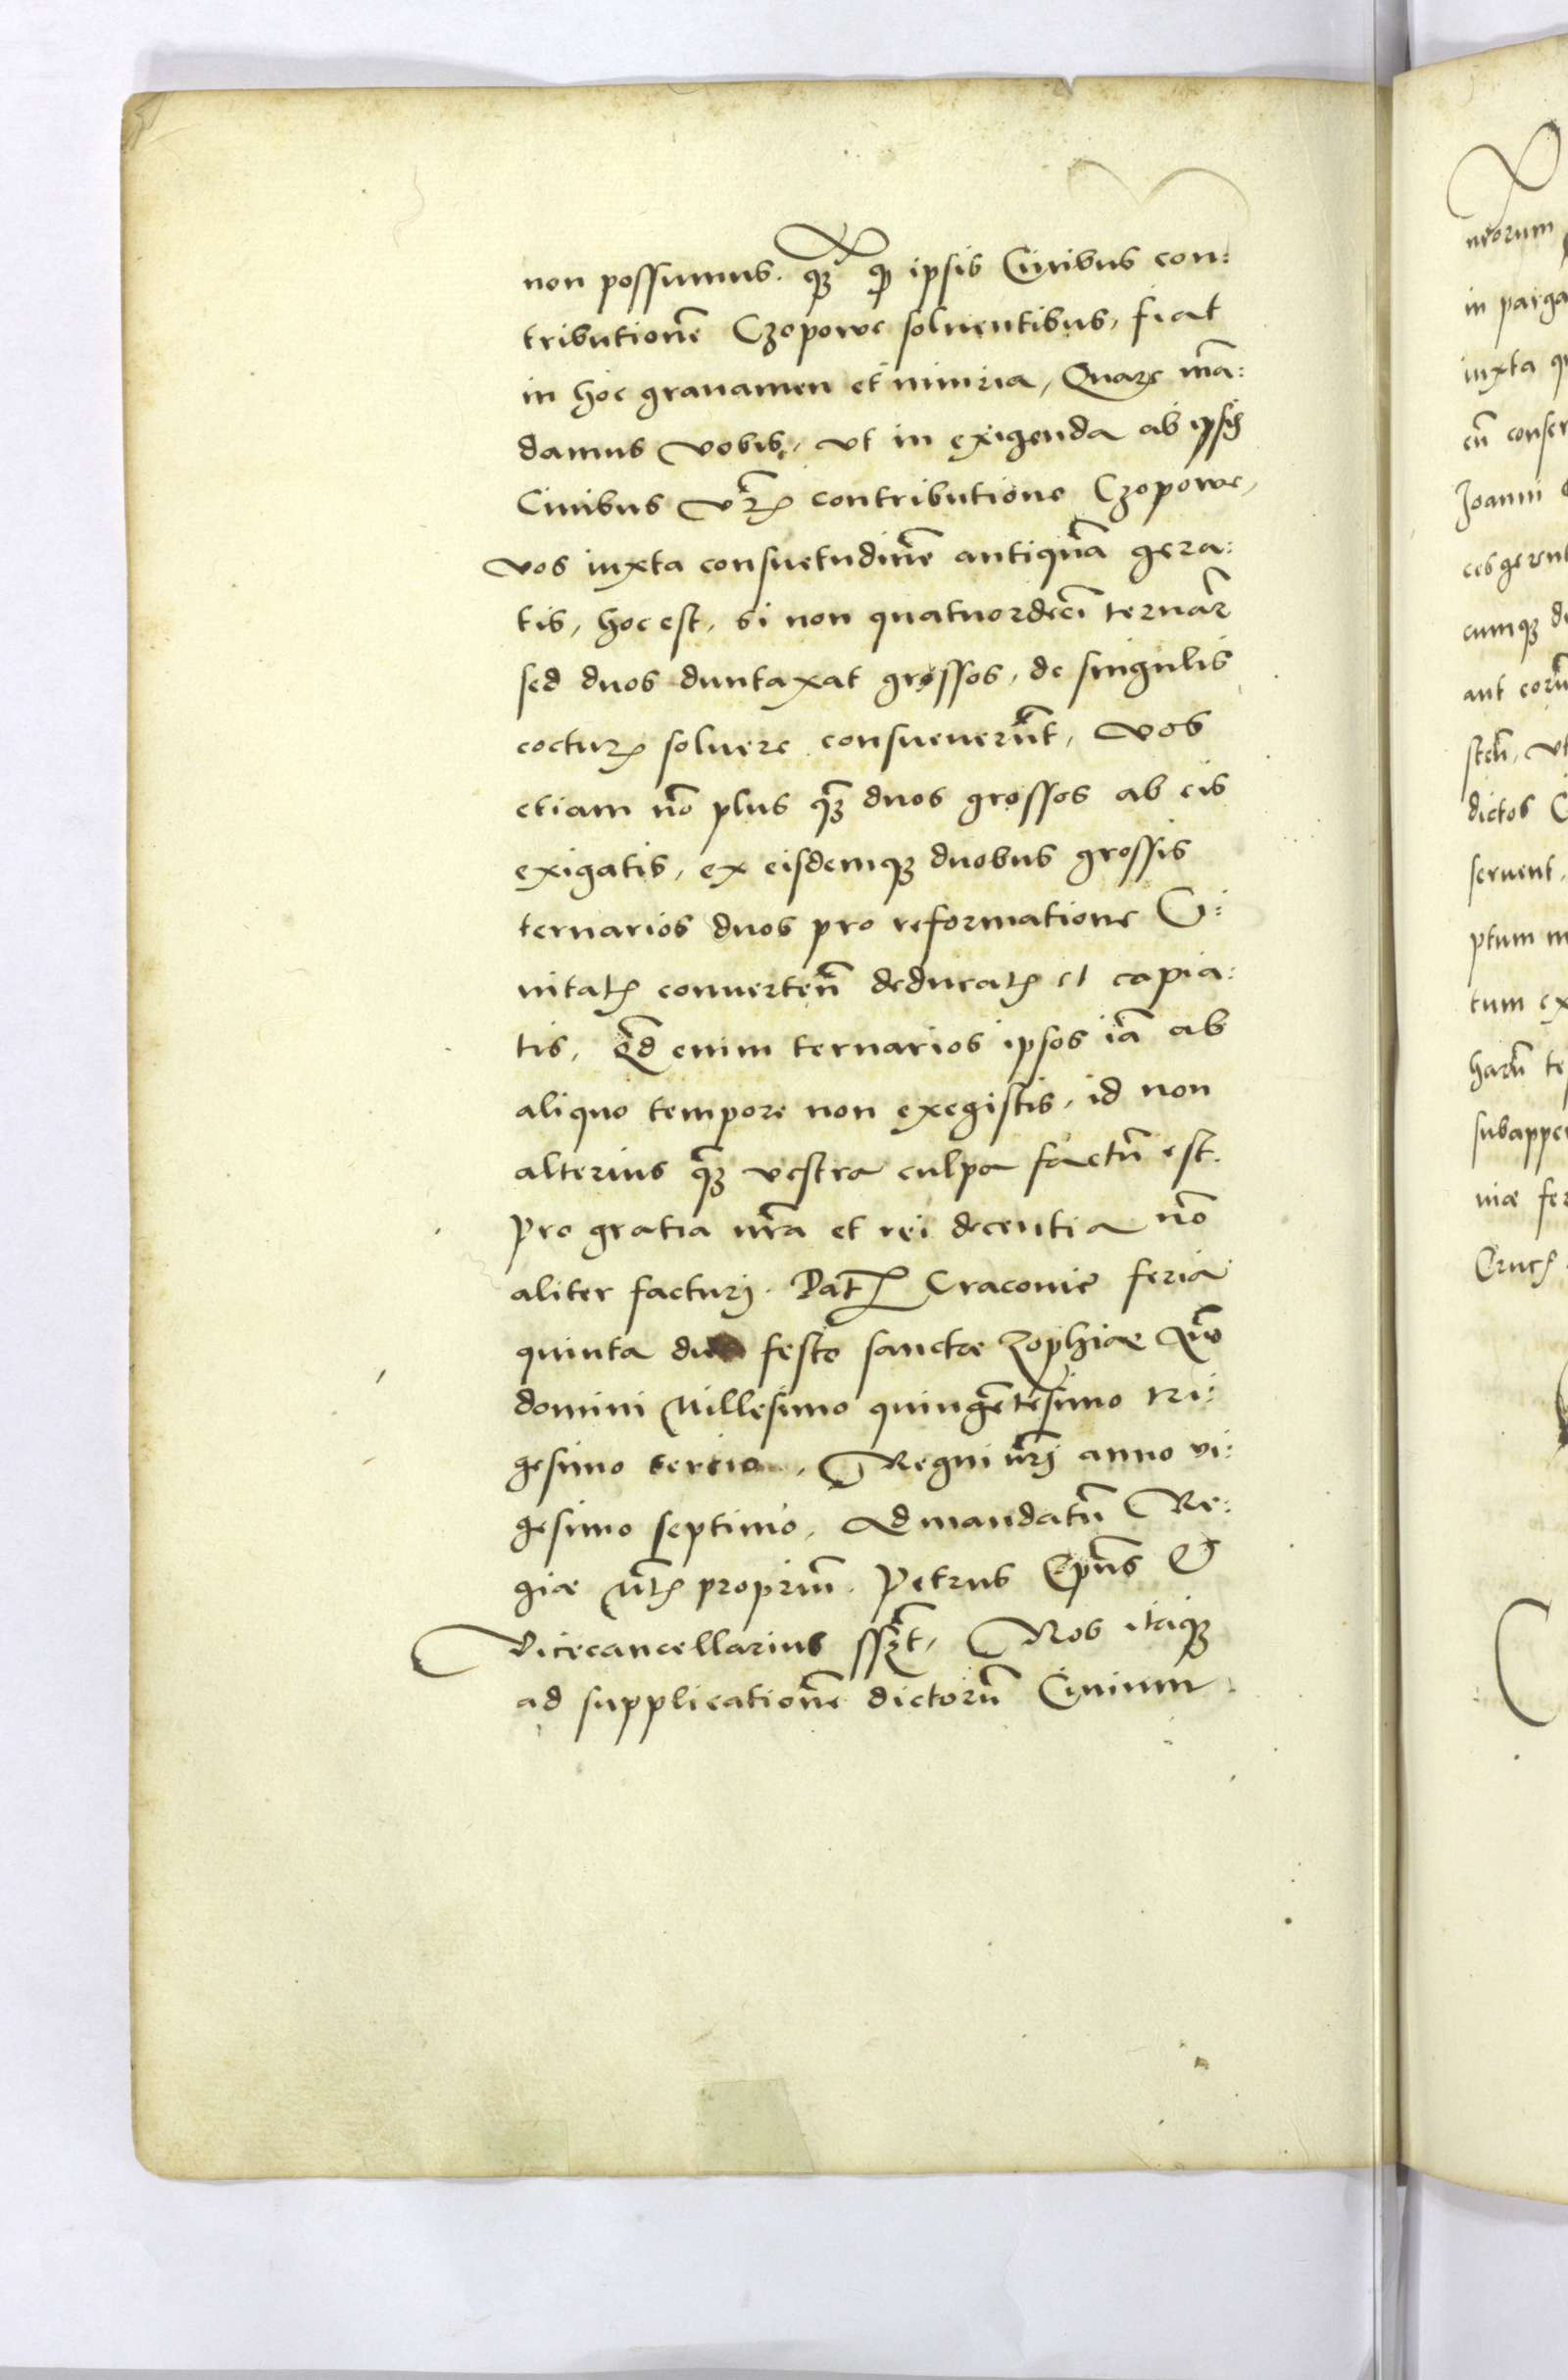 non possumus. qȝ qp ipsis Ciuibus con:
tributionē Czopowe soluentibus, fiat
in hoc grauamen et iniuria, Quare mā:
damus vobis, vt in exigenda ab ipsis
Ciuibus vr̄is contributione Czopowe,
vos iuxta consuetudinē antiquā gera:
tis, hoc est, si non quatuordecī ternar̄
sed duos duntaxat grossos, de singulis
cocturis soluere consueuerūt, vos
etiam nō plus qȝ̄ duos grossos ab eis
exigatis, ex eisdemqȝ duobus grossis
ternarios duos pro reformatione Ci:
uitatis conuertēn̄ deducatis et capia:
tis, Qd̄ enim ternarios ipsos iā ab
aliquo tempore non exegistis, id non
alterius qȝ̄ vestra culpa factū est.
Pro gratia nr̄a et rei decentia nō
aliter facturj. Dat̄ Cracouie feria
quinta die festo sanctæ Zophiæ Año
domini Millesimo quingētesimo tri:
gesimo tercio. Regni nr̄j anno vi:
gesimo septimo. Ad mandatū Re:
giæ Mt̄is propriū. Petrus Ep̄us &
Vicecancellarius sszt, Nos itaqȝ
ad supplicationē dictorū Ciuium
neorum
in parga
iuxta q
cū conser
Joanni
ces gerent
cumqȝ de
aut eorū
vt
dictos C
seruent,
ptum m
tum ex
harū te
subappe
niæ fe
Crucis